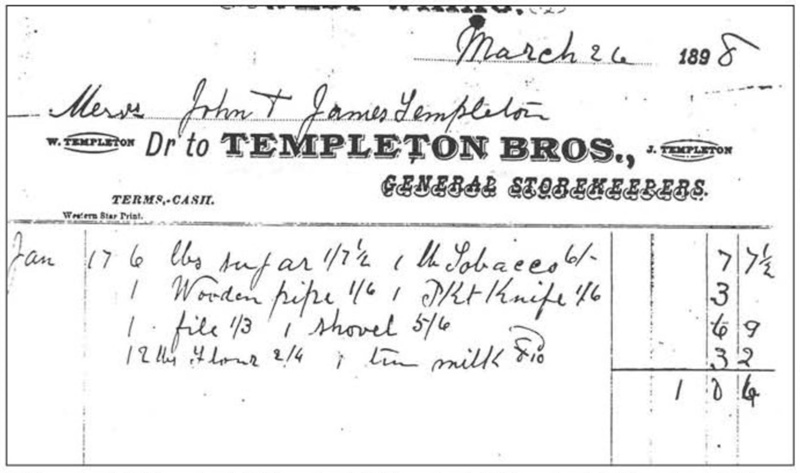 March 26 1898
Messrs John & James Templeton
W. TEMPLETON Dr to TEMPLETON BROS., J. TEMPLETON
GENERAL STOREKEEPERS.
TERMS,-CASH.
Western Star Print.
Jan 17 6 lbs sugar 1/7½ 1 lb Tobacco 6/- 7 7½
1 Wooden pipe 1/6 1 Pkt Knife 1/6 3
1 file 1/3 1 shovel 5/6 6 9
12 lbs Flour 2/4 1 tin milk 10 3 2
1 0 6